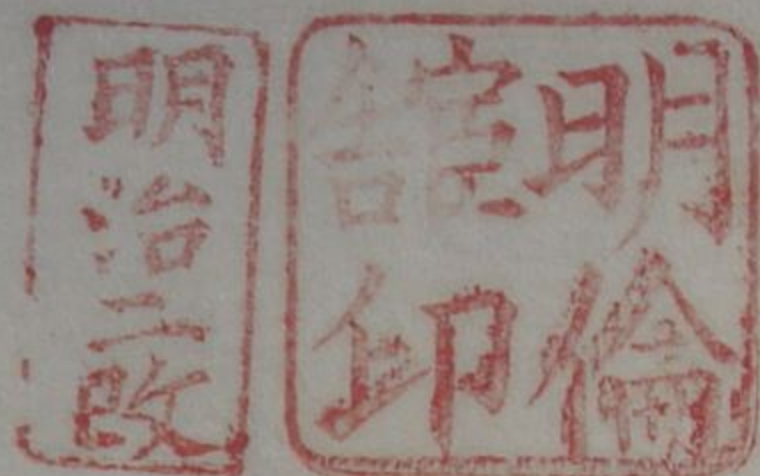 明倫
舘印
明治二改